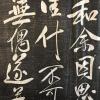 和余因思
什不可
無偶遂